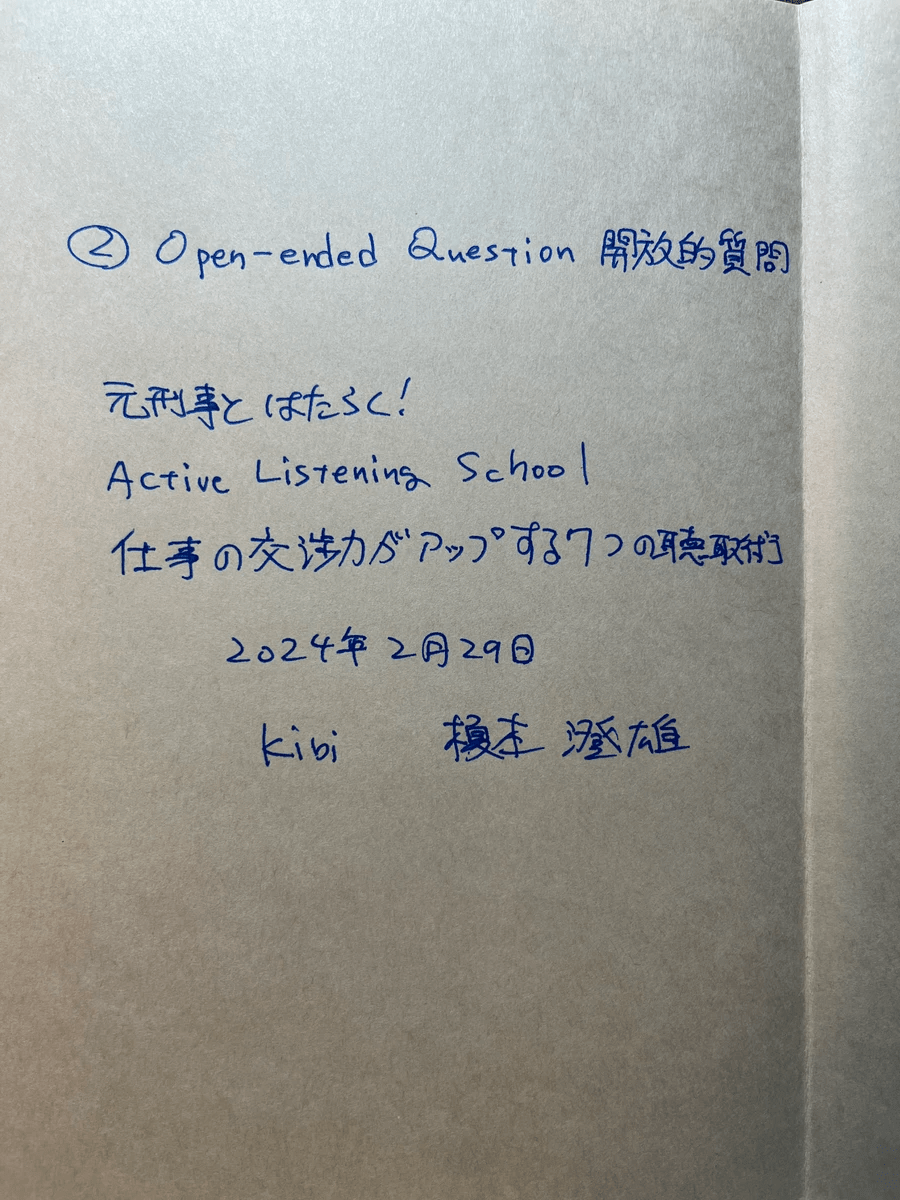 ② Open-ended Question 開放的質問
元刑事とはたらく!
Active Listening School
仕事の交渉力がアップする7つの聴取術
2024年2月29日
kibi 榎本 澄雄